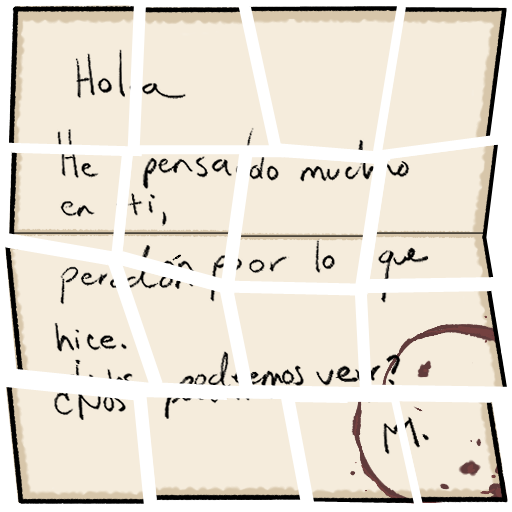 Hola
He pensado mucho
en ti,
perdón por lo que
hice.
¿Nos podremos ver?
M.